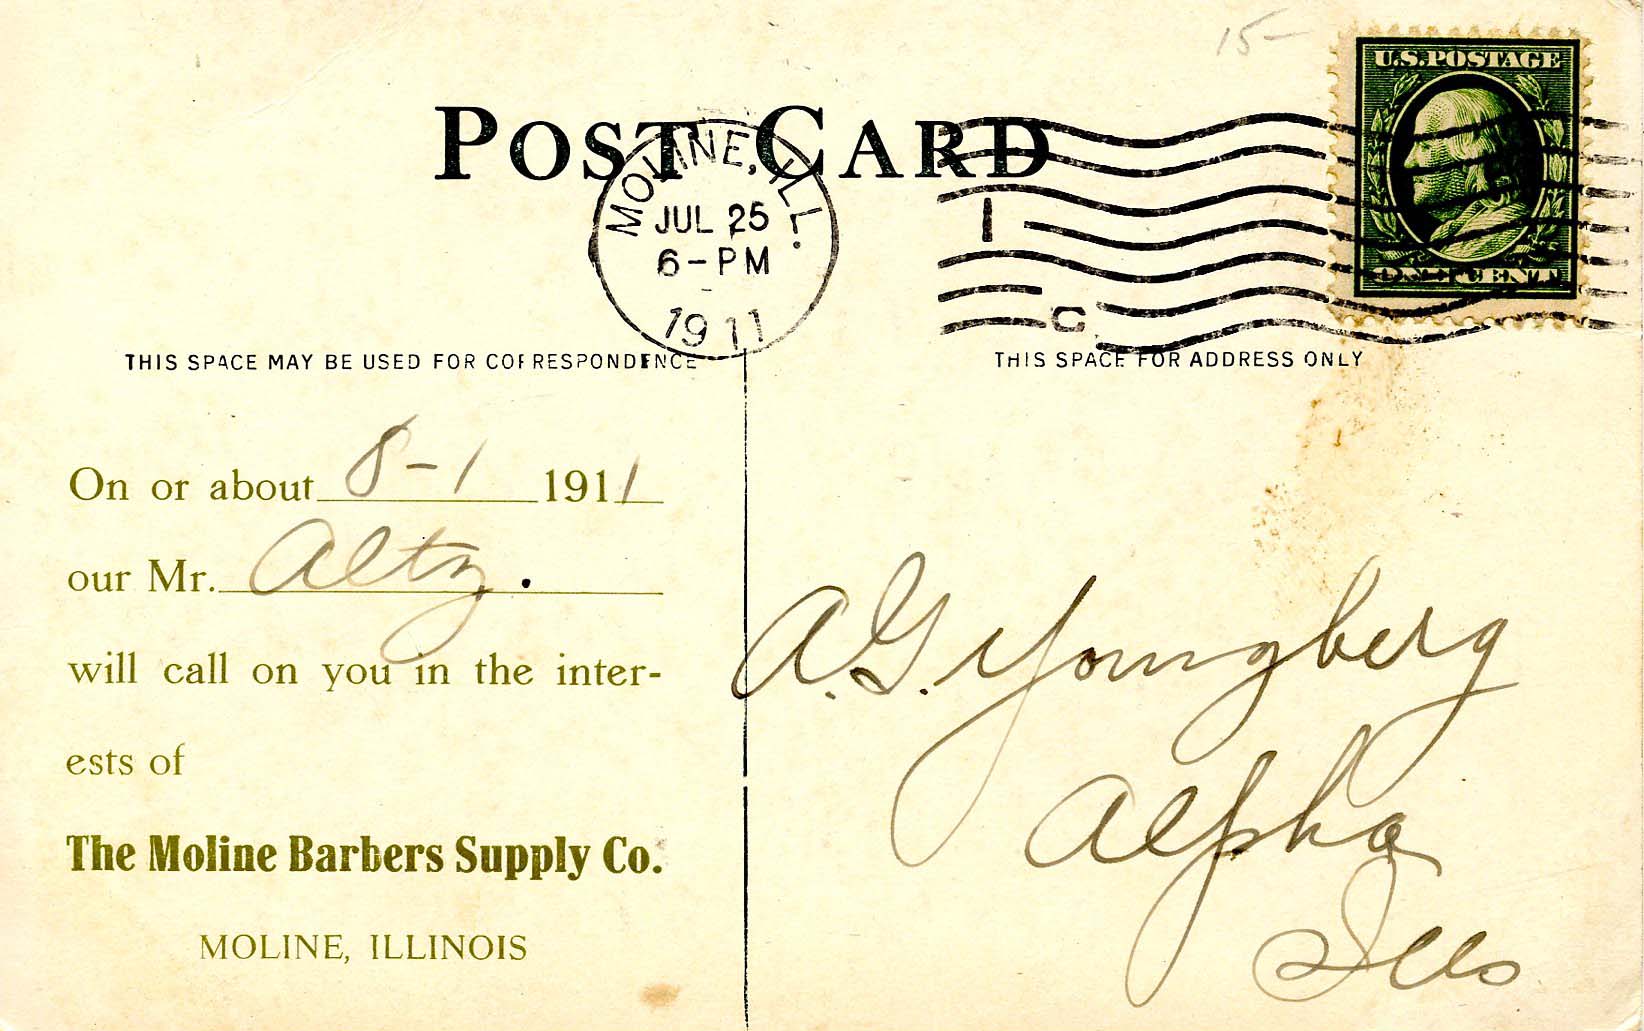 15-
U.S. POSTAGE
ONE CENT
POST CARD
MOLINE, ILL.
JUL 25
6-PM
1911
1
C
THIS SPACE MAY BE USED FOR CORRESPONDENCE
THIS SPACE FOR ADDRESS ONLY
On or about 8-1 1911
our Mr. Altz.
will call on you in the inter-
ests of
The Moline Barbers Supply Co.
MOLINE, ILLINOIS
A. G. Youngberg
Alpha
Ills